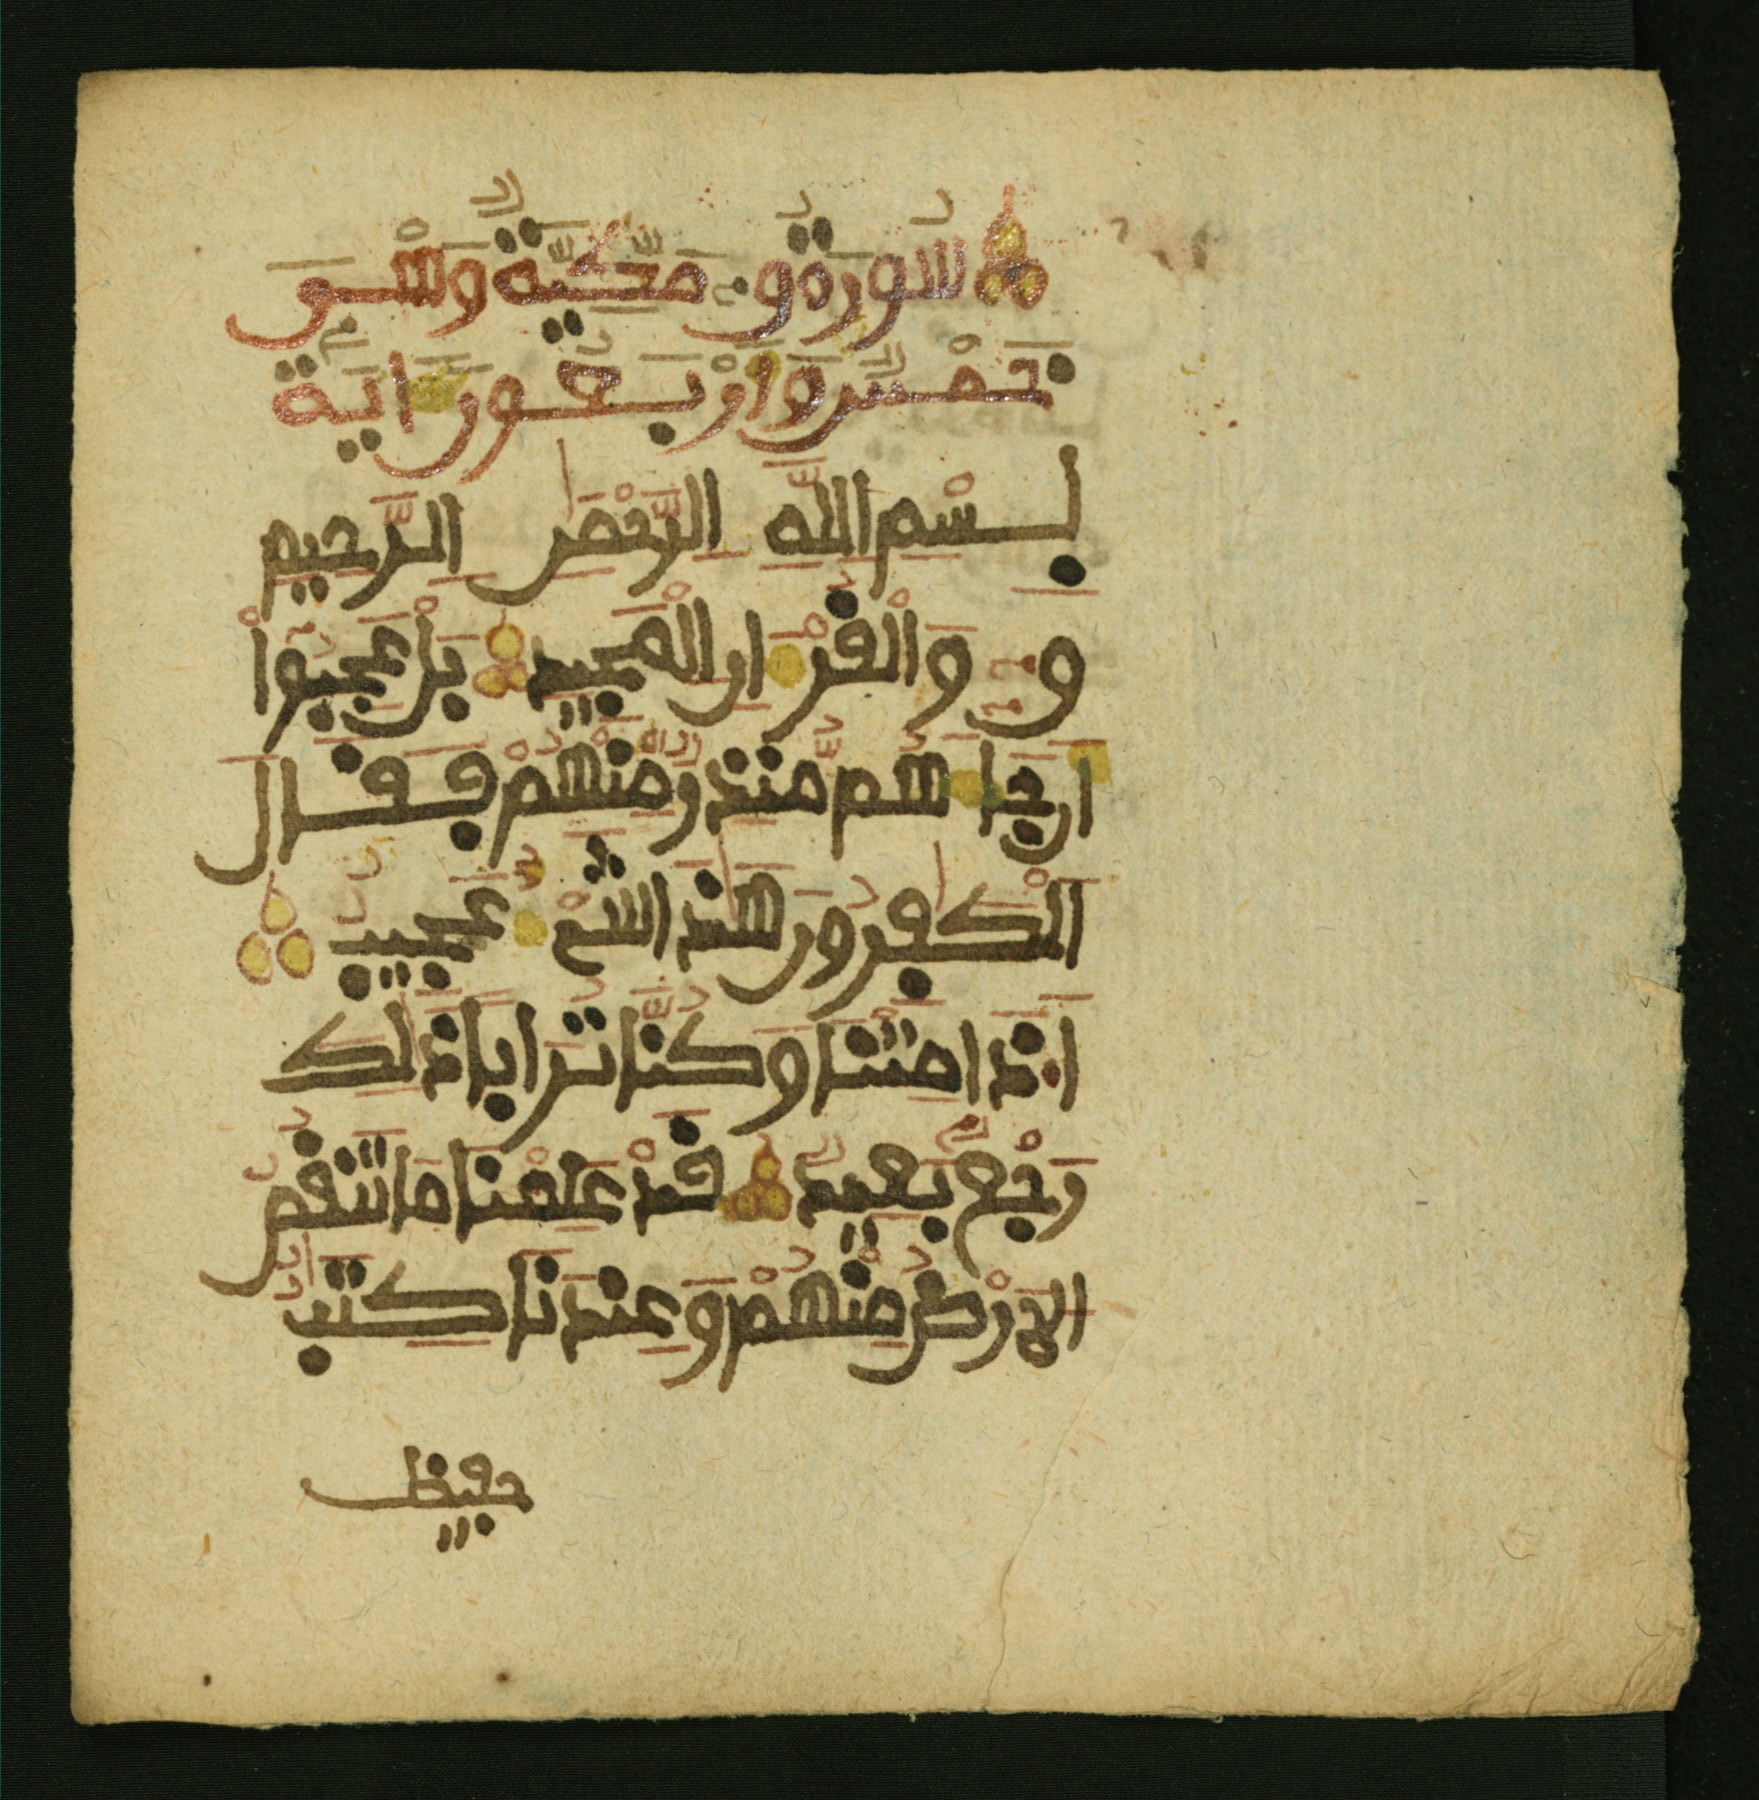 سُورَةُ قٓ مَكِّيَّةٌ وَهْىَ
خَمْسٌ وَارْبَعُونَ ايَةً
بِسْمِ اللَّهِ الرَّحْمَٰنِ الرَّحِيمِ
قٓ وَالْقُرْءَانِ الْمَجِيدِ بَلْ عَجِبُوٓاْ
أَن جَآءَهُم مُّنذِرٌ مِّنْهُمْ فَقَالَ
الْكَٰفِرُونَ هَٰذَا شَىْءٌ عَجِيبٌ
أَ.ذَا مِتْنَا وَكُنَّا تُرَابًا ذَٰلِكَ
رَجْعٌ بَعِيدٌ قَدْ عَلِمْنَا مَا تَنقُصُ
الَارْضُ مِنْهُمْ وَعِندَنَا كِتَٰبٌ
حفيظ